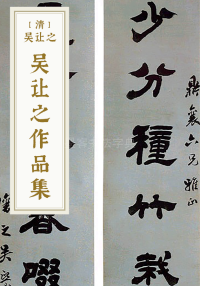 [清]
吴让之
吴让之作品集
少分種竹栽
鼎襄六兄雅正
春啜